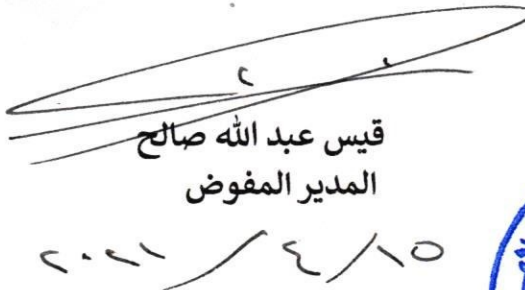 قيس عبد الله صالح
المدير المفوض
٢٠٢١ / ٤ / ١٥